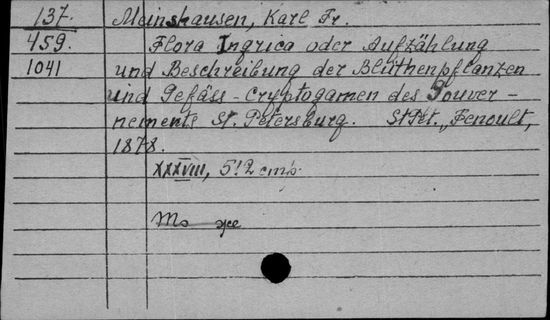 137. Meinshausen, Karl Fr.
459. Flora Ingrica oder Aufzählung
1041 und Beschreibung der Blüthenpflanzen
und Gefäss-Cryptogamen des Gouver-
nements St. Petersburg. StPet., Fenoult,
1878.
XXXVIII, 512 стр.
То же